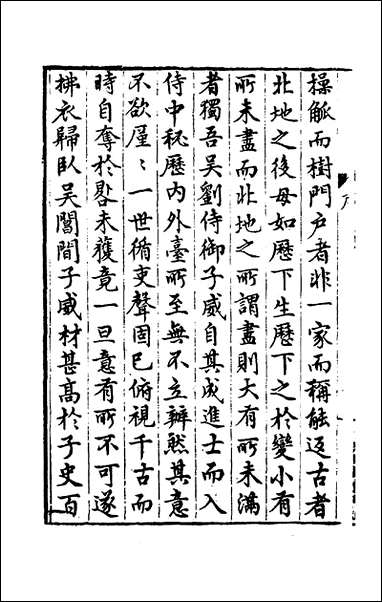 操觚而樹門户者非一家而稱能返古者
北地之後毋如歷下生歷下之於變小有
所未盡而北地之所謂盡則大有所未滿
者獨吾吳劉侍御子威自其成進士而入
侍中秘歷内外臺所至無不立辦然其意
不欲屋〻一世循吏聲固已俯視千古而
時自奪於晷未獲竟一旦意有所不可遂
拂衣歸臥吳閶間子威材甚高於子史百